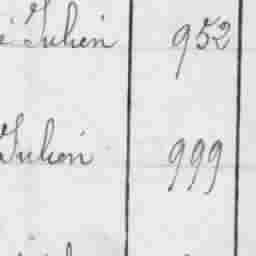 é Julien 952
Julien 999